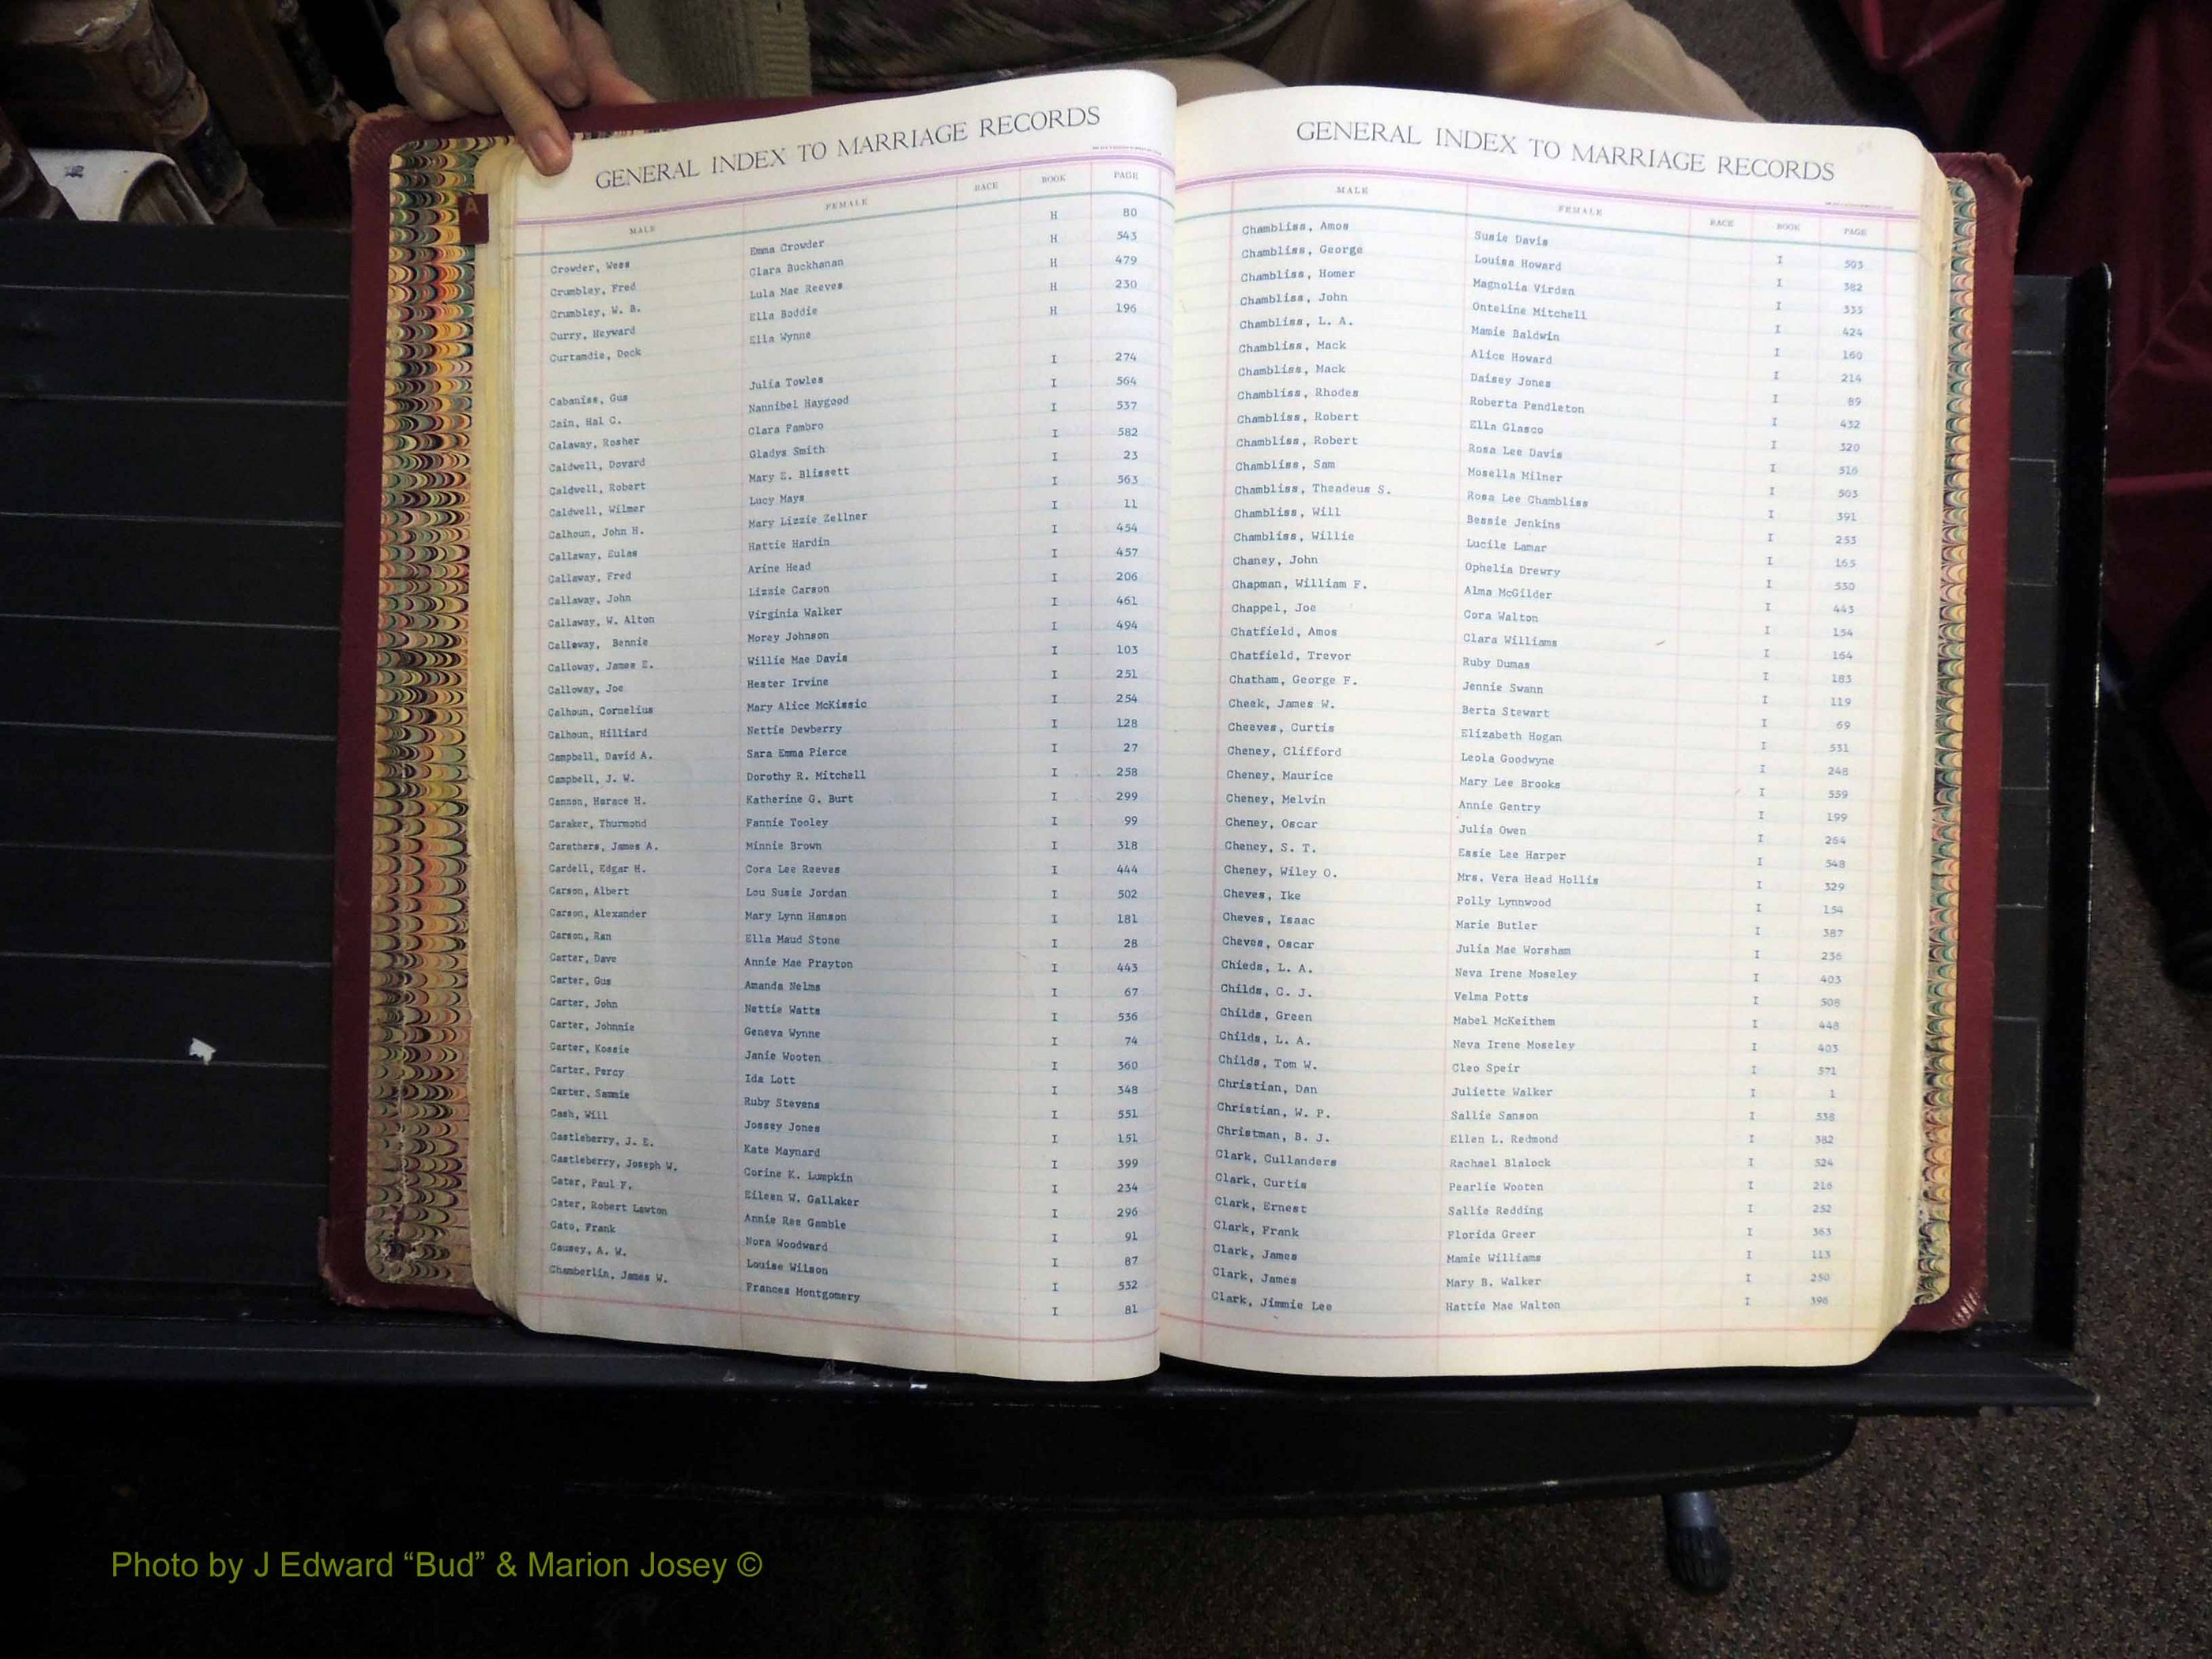 GENERAL INDEX TO MARRIAGE RECORDS
MALE FEMALE RACE BOOK PAGE
Crowder, Wess Emma Crowder H 80
Crumbley, Fred Clara Buckhanan H 543
Crumbley, W. B. Lula Mae Reeves H 479
Curry, Heyward Ella Boddie H 230
Curtandie, Dock Ella Wynne H 196
Cabaniss, Gus Julia Towles I 274
Cain, Hal C. Nannibel Haygood I 564
Calaway, Rosher Clara Fambro I 537
Caldwell, Dovard Gladys Smith I 582
Caldwell, Robert Mary E. Blissett I 23
Caldwell, Wilmer Lucy Mays I 563
Calhoun, John H. Mary Lizzie Zellner I 11
Callaway, Eulas Hattie Hardin I 454
Callaway, Fred Arine Head I 457
Callaway, John Lizzie Carson I 206
Callaway, W. Alton Virginia Walker I 461
Calloway, Bennie Morey Johnson I 494
Calloway, James E. Willie Mae Davis I 103
Calloway, Joe Hester Irvine I 251
Calhoun, Cornelius Mary Alice McKissic I 254
Calhoun, Hilliard Nettie Dewberry I 128
Campbell, David A. Sara Emma Pierce I 27
Campbell, J. W. Dorothy R. Mitchell I 258
Cannon, Horace H. Katherine G. Burt I 299
Caraker, Thurmond Fannie Tooley I 99
Carathers, James A. Minnie Brown I 318
Cardell, Edgar H. Cora Lee Reeves I 444
Carson, Albert Lou Susie Jordan I 502
Carson, Alexander Mary Lynn Hanson I 181
Carson, Ran Ella Maud Stone I 28
Carter, Dave Annie Mae Prayton I 443
Carter, Gus Amanda Nelms I 67
Carter, John Nettie Watts I 536
Carter, Johnnie Geneva Wynne I 74
Carter, Kossie Janie Wooten I 360
Carter, Percy Ida Lott I 348
Carter, Sammie Ruby Stevens I 551
Cash, Will Jossey Jones I 151
Castleberry, J. E. Kate Maynard I 399
Castleberry, Joseph W. Corine K. Lumpkin I 234
Cater, Paul F. Eileen W. Gallaker I 296
Cater, Robert Lawton Annie Ree Gamble I 91
Cato, Frank Nora Woodward I 87
Causey, A. W. Louise Wilson I 532
Chamberlin, James W. Frances Montgomery I 81
GENERAL INDEX TO MARRIAGE RECORDS
MALE FEMALE RACE BOOK PAGE
Chambliss, Amos Susie Davis I 503
Chambliss, George Louisa Howard I 382
Chambliss, Homer Magnolia Virden I 333
Chambliss, John Onteline Mitchell I 424
Chambliss, L. A. Mamie Baldwin I 160
Chambliss, Mack Alice Howard I 214
Chambliss, Mack Daisey Jones I 89
Chambliss, Rhodes Roberta Pendleton I 432
Chambliss, Robert Ella Glasco I 320
Chambliss, Robert Rosa Lee Davis I 516
Chambliss, Sam Mosella Milner I 503
Chambliss, Theadeus S. Rosa Lee Chambliss I 391
Chambliss, Will Bessie Jenkins I 253
Chambliss, Willie Lucile Lamar I 165
Chaney, John Ophelia Drewry I 530
Chapman, William F. Alma McGilder I 443
Chappel, Joe Cora Walton I 154
Chatfield, Amos Clara Williams I 164
Chatfield, Trevor Ruby Dumas I 183
Chatham, George F. Jennie Swann I 119
Cheek, James W. Berta Stewart I 69
Cheeves, Curtis Elizabeth Hogan I 531
Cheney, Clifford Leola Goodwyne I 248
Cheney, Maurice Mary Lee Brooks I 559
Cheney, Melvin Annie Gentry I 199
Cheney, Oscar Julia Owen I 264
Cheney, S. T. Essie Lee Harper I 548
Cheney, Wiley O. Mrs. Vera Head Hollis I 329
Cheves, Ike Polly Lynnwood I 154
Cheves, Isaac Marie Butler I 387
Cheves, Oscar Julia Mae Worsham I 236
Chieds, L. A. Neva Irene Moseley I 403
Childs, C. J. Velma Potts I 508
Childs, Green Mabel McKeithem I 448
Childs, L. A. Neva Irene Moseley I 403
Childs, Tom W. Cleo Speir I 571
Christian, Dan Juliette Walker I 1
Christian, W. P. Sallie Sanson I 538
Christman, B. J. Ellen L. Redmond I 382
Clark, Cullanders Rachael Blalock I 524
Clark, Curtis Pearlie Wooten I 216
Clark, Ernest Sallie Redding I 252
Clark, Frank Florida Greer I 363
Clark, James Mamie Williams I 113
Clark, James Mary B. Walker I 250
Clark, Jimmie Lee Hattie Mae Walton I 396
A
Photo by J Edward “Bud” & Marion Josey ©